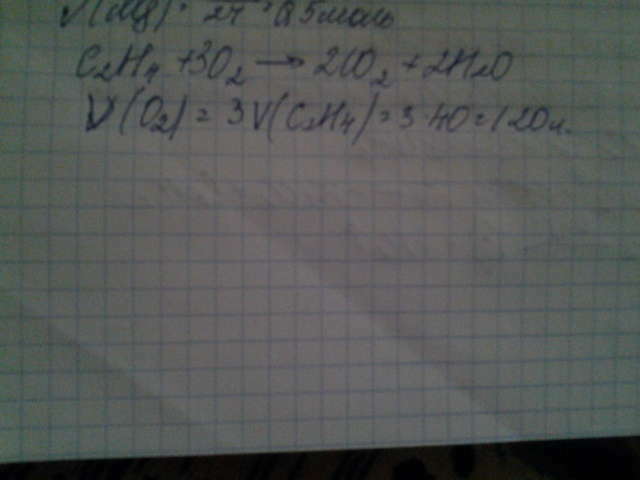 ν(Mg) = 24 = 0,5 моль
C₂H₄ + 3O₂ → 2CO₂ + 2H₂O
V(O₂) = 3V(C₂H₄) = 3·40 = 120 л.